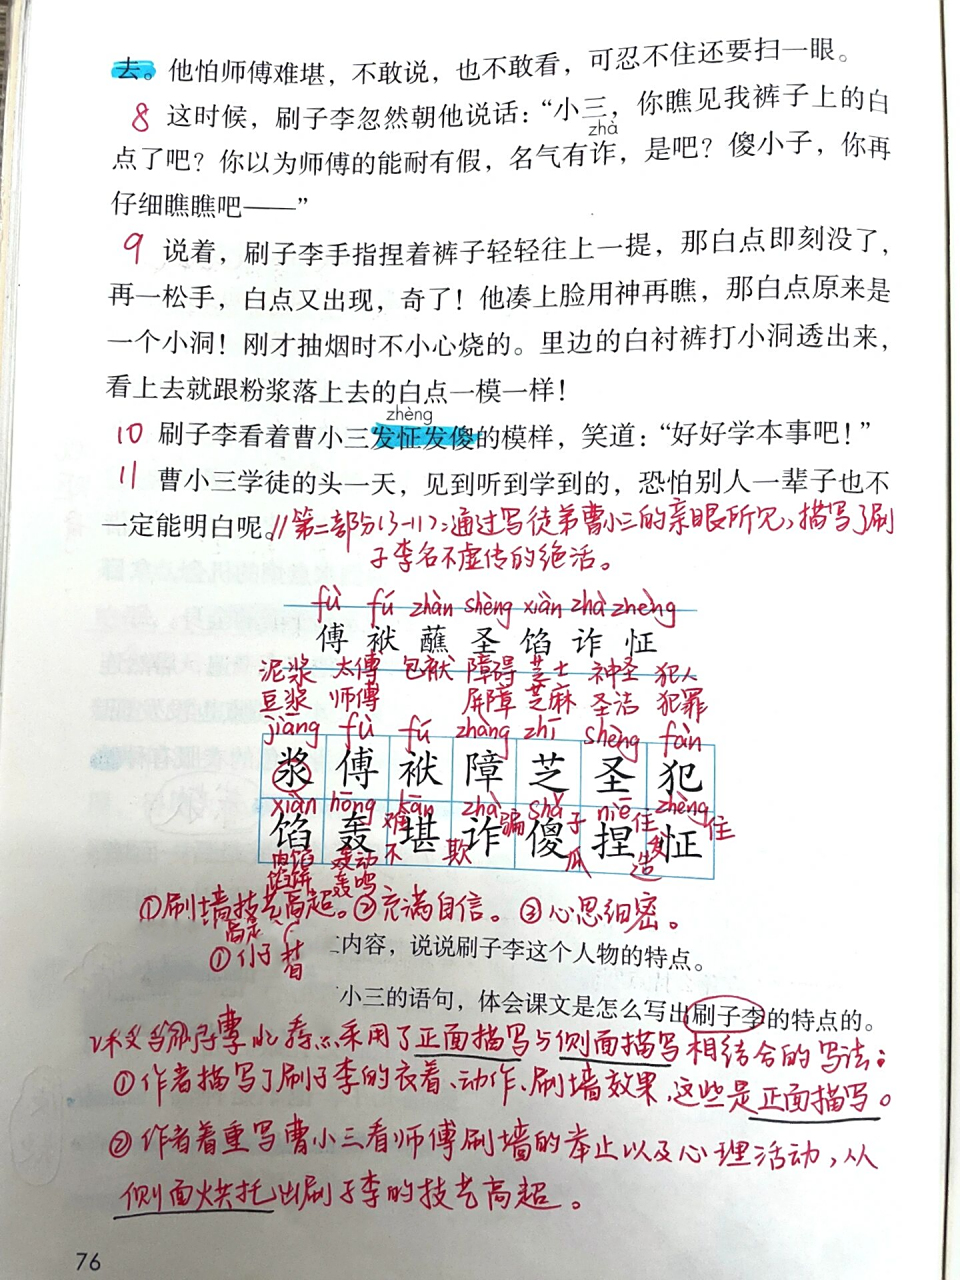 去。他怕师傅难堪，不敢说，也不敢看，可忍不住还要扫一眼。
8 这时候，刷子李忽然朝他说话：“小三，你瞧见我裤子上的白
zhà
点了吧？你以为师傅的能耐有假，名气有诈，是吧？傻小子，你再
仔细瞧瞧吧——”
9 说着，刷子李手指捏着裤子轻轻往上一提，那白点即刻没了，
再一松手，白点又出现，奇了！他凑上脸用神再瞧，那白点原来是
一个小洞！刚才抽烟时不小心烧的。里边的白衬裤打小洞透出来，
看上去就跟粉浆落上去的白点一模一样！
zhèng
10 刷子李看着曹小三发怔发傻的模样，笑道：“好好学本事吧！”
11 曹小三学徒的头一天，见到听到学到的，恐怕别人一辈子也不
一定能明白呢。//第二部分(3-11)：通过写徒弟曹小三的亲眼所见，描写了刷
子李名不虚传的绝活。
fù fú zhàn shèng xiàn zhà zhèng
傅 袱 蘸 圣 馅 诈 怔
泥浆 太傅 包袱 障碍 芝士 神圣 犯人
豆浆 师傅 屏障 芝麻 圣洁 犯罪
jiāng fù fú zhàng zhī shèng fàn
浆 傅 袱 障 芝 圣 犯
xiàn hōng kān zhà shǎ niē zhèng
馅 轰 难 堪 诈 骗 傻 子 捏 住 发 怔 住
内馅 轰动 不 欺 瓜 造
馅饼 轰鸣
①刷墙技艺高超。②充满自信。③心思细密。
高
①
内容，说说刷子李这个人物的特点。
小三的语句，体会课文是怎么写出刷子李的特点的。
采用了正面描写与侧面描写相结合的写法：
①作者描写了刷子李的衣着、动作、刷墙效果，这些是正面描写。
②作者着重写曹小三看师傅刷墙的举止以及心理活动，从
侧面烘托出刷子李的技艺高超。
76